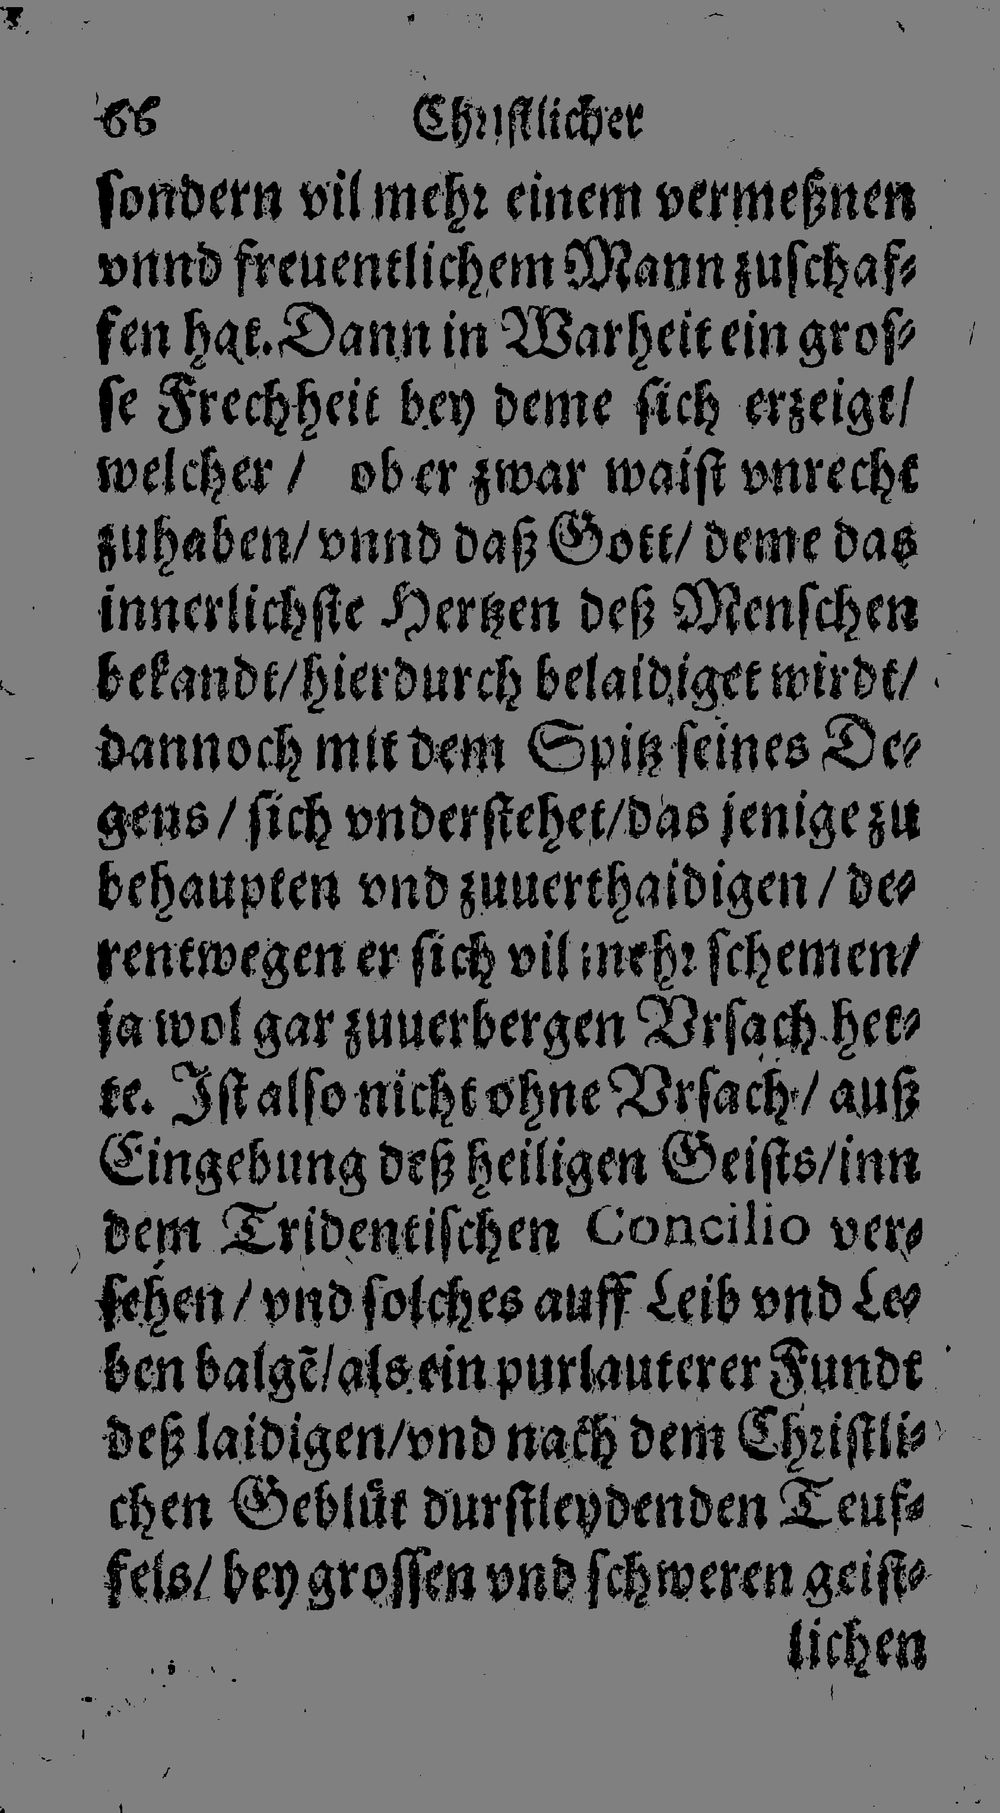 66 Christlicher
sondern vil mehr einem vermeßnen
vnnd freuentlichem Mann zuschaf-
fen hat. Dann in Warheit ein gros-
se Frechheit bey deme sich erzeigt/
welcher / ob er zwar waist vnrecht
zuhaben/ vnnd daß Gott/ deme das
innerlichste Hertzen deß Menschen
bekandt/ hierdurch belaidiget wirdt/
dannoch mit dem Spitz seines De-
gens / sich vnderstehet/ das jenige zu
behaupten vnd zuuerthaidigen / de-
rentwegen er sich vil mehr schemen/
ja wol gar zuuerbergen Vrsach het-
te. Ist also nicht ohne Vrsach / auß
Eingebung deß heiligen Geists/ inn
dem Tridentischen Concilio ver-
sehen / vnd solches auff Leib vnd Le-
ben balgẽ/ als ein purlauterer Fundt
deß laidigen/ vnd nach dem Christli-
chen Geblůt durstleydenden Teuf-
fels/ bey grossen vnd schweren geist-
lichen